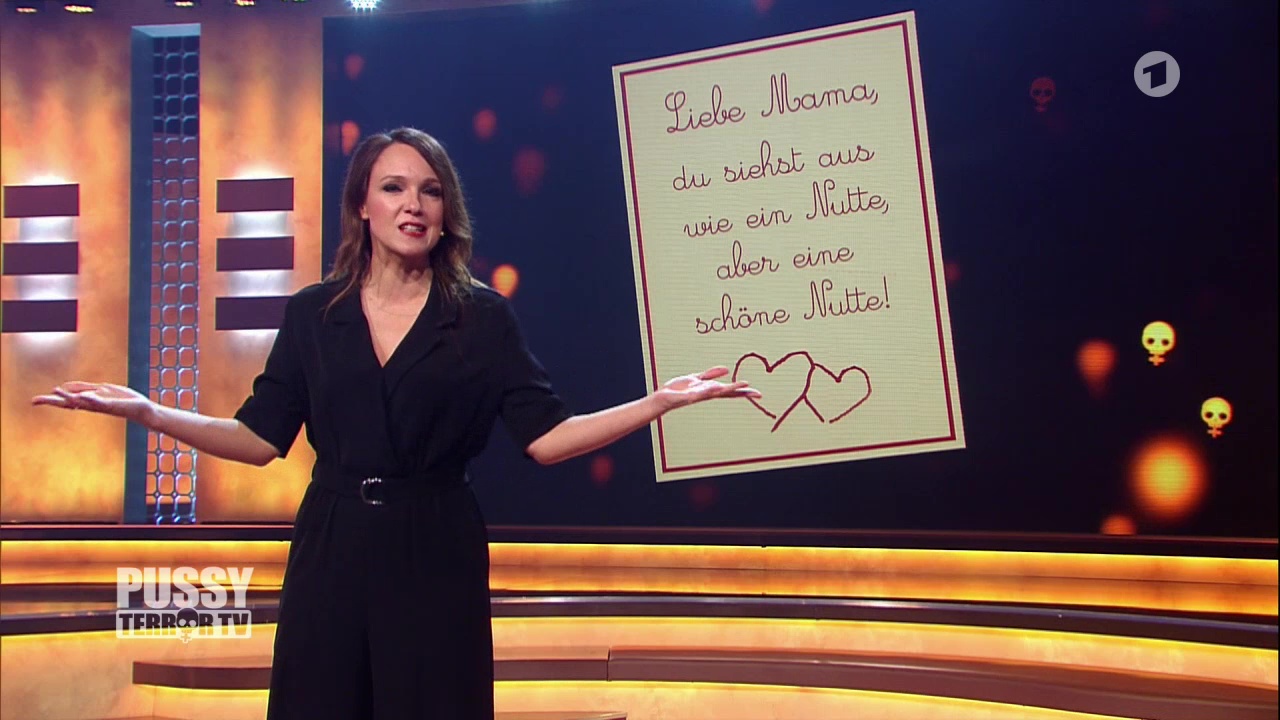 Liebe Mama,
du siehst aus
wie ein Nutte,
aber eine
schöne Nutte!
1
PUSSY
TERROR TV